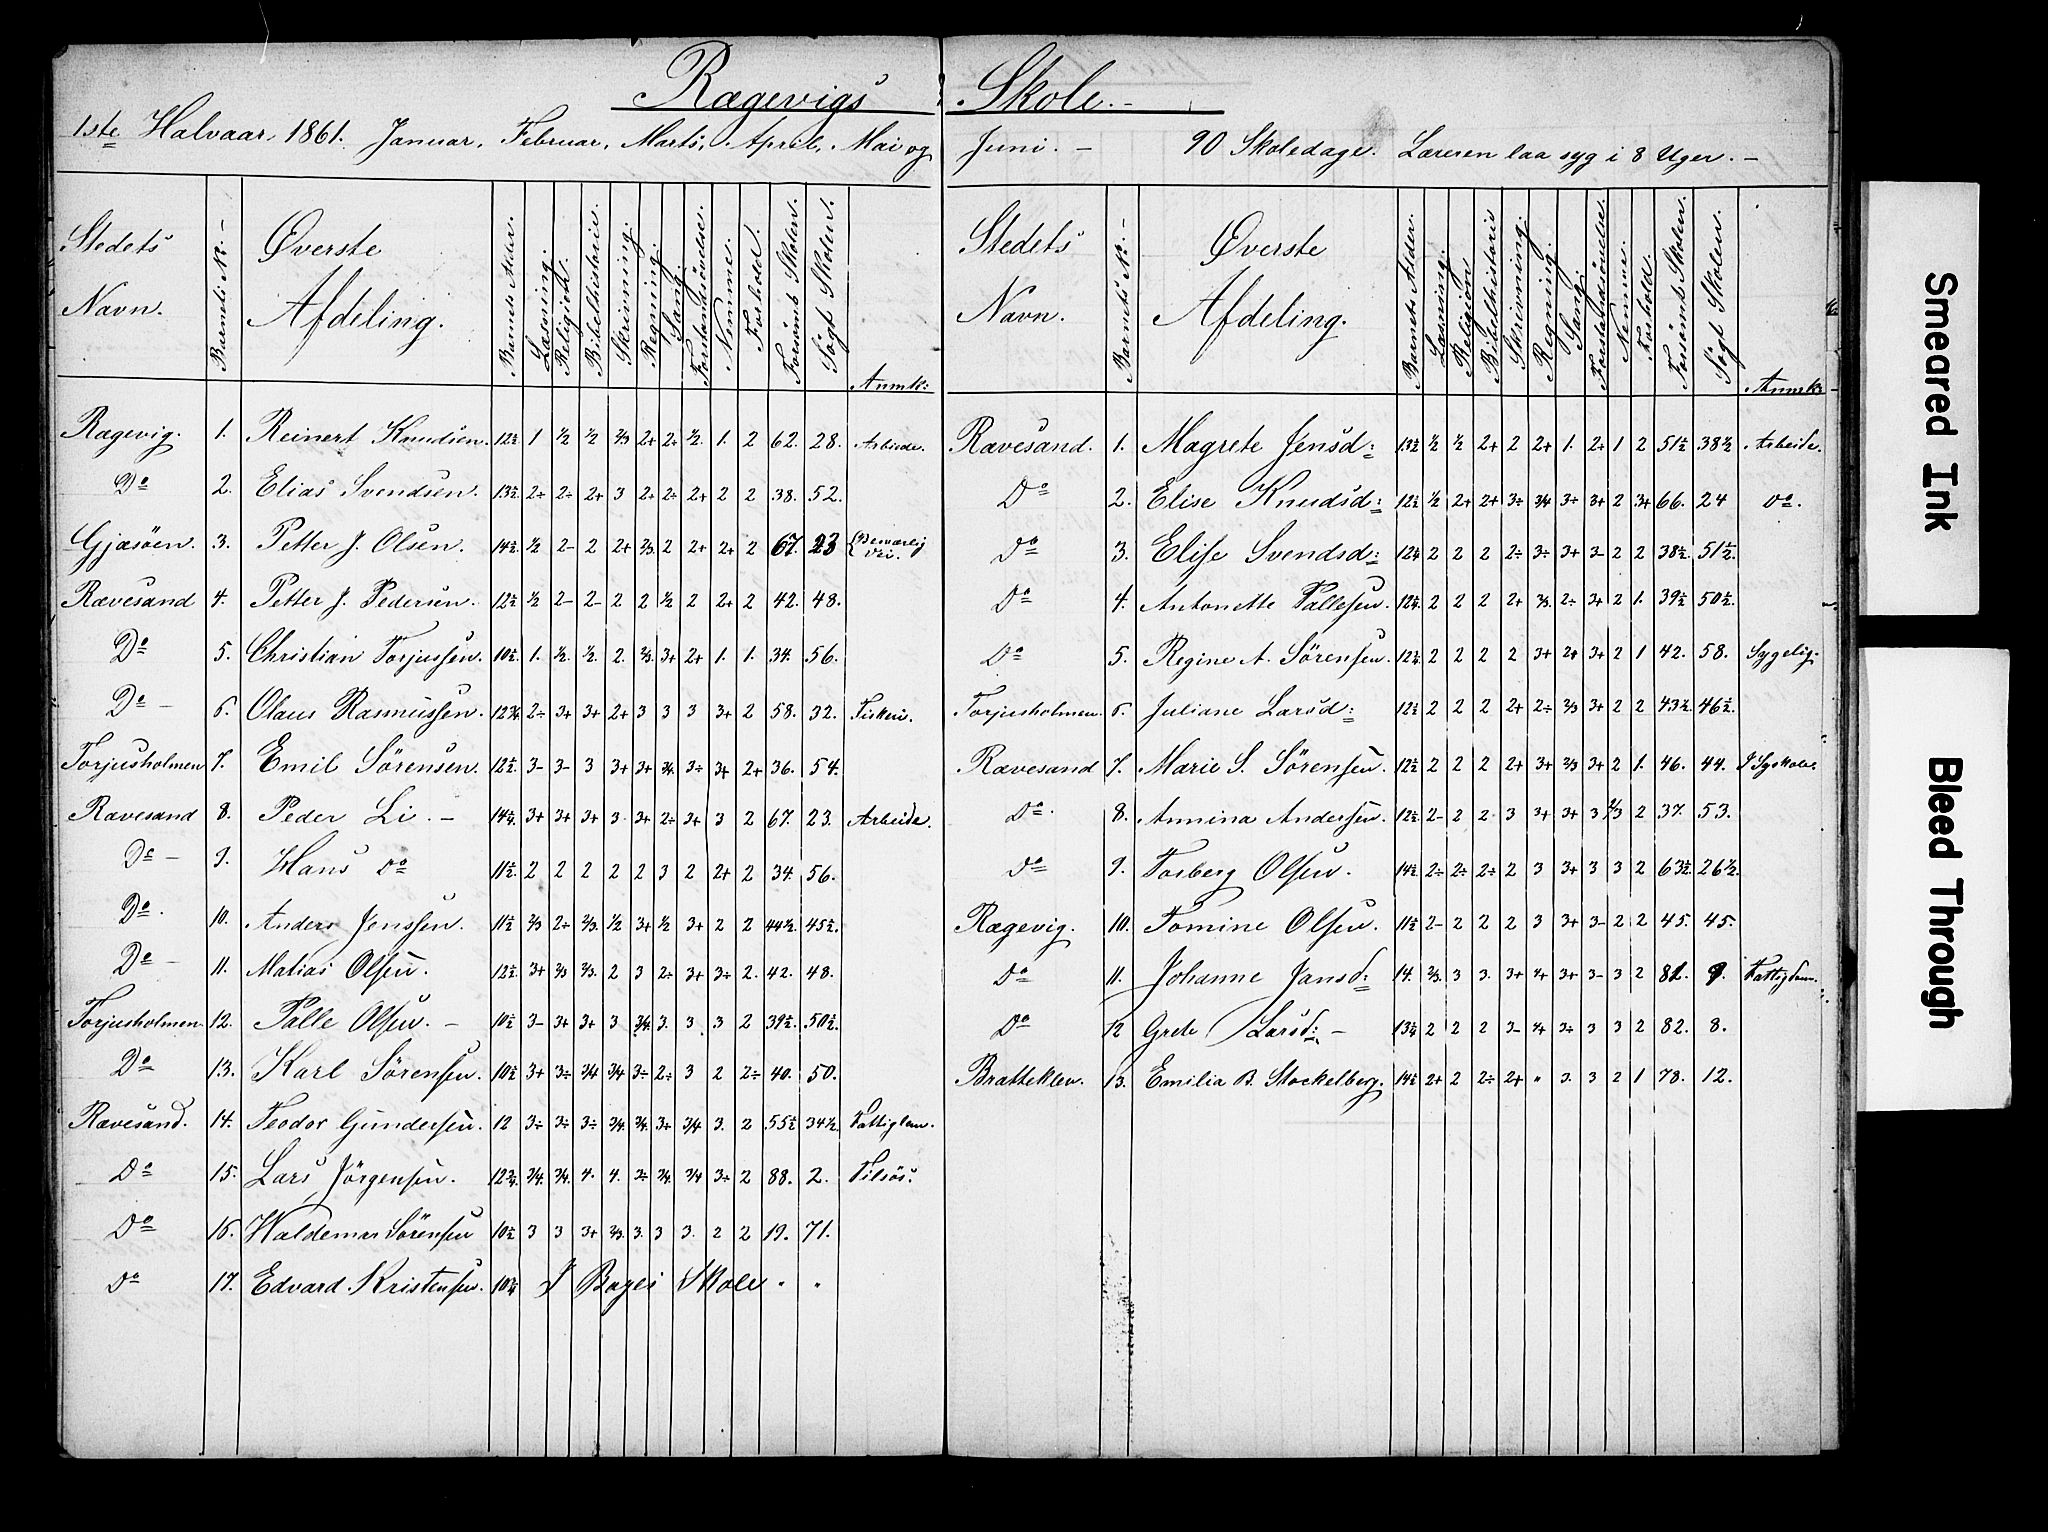 Rægevigs Skole.-
1ste Halvaar, 1861. Januar, Februar, Marts, April, Mai og Juni. - 90 Skoledage. Læreren laa syg i 8 Uger. -
Stedets Navn. Barnets No. - Øverste Afdeling. Barnets Alder. Læsning. Religion. Bibelhistorie. Skrivning. Regning. Sang. Forstandsøvelse. Nemme. Forhold. Forsømt Skolen. Søgt Skolen. Anmk:
Rægevig. 1. Reinert Knudsen. 12½ 1 ½ ½ 2/3 2+ 2÷ ½. 1. 2 62. 28. Arbeide.
Do 2. Elias Svendsen. 13½. 2÷ 2÷ 2+ 3 2÷ 2÷ 2+ 2 2 38. 52.
Gjæsöen. 3. Petter J. Olsen. 14½. ½ 2- 2 2+ 2/3. 2 2+ 2+ 2 67. 23
Rævesand 4. Petter J. Pedersen. 12½ ½ 2- 2- 2 2 ½ 2 2+ 2 42. 48.
Do 5. Christian Torjussen. 10½. 1. ½. ½. 2. 2/3. 3+ 2+ 1. 1. 34. 56.
Do - 6. Olaus Rasmussen. 12¾. 2÷ 3+ 3+ 2+ 3 3 3 3+ 2 58. 32. Fiskeri.
Torjusholmen 7. Emil Sørensen. 12½. 3- 3- 3 3+ 3+ ¾. 3÷ 3+ 2+ 36. 54.
Rævesand 8. Peder Li. - 14¼. 3+ 3+ 3+ 3 3+ 2÷ 3+ 3 2 67. 23. Arbeide.
Do - 9. Hans do 11½. 2 2 2 2 2 3 2 2+ 2 34. 56.
Do. 10. Anders Jenssen. 11½ 2/3 2÷ 2/3. ½ 3+ ½ 3+ 2 2 44½. 45½.
Do - 11. Matias Olsen. 12½ 3+ 2/3 2/3. 2 3 2÷ 3+ 3÷ 2. 42. 48.
Torjusholmen. 12. Palle Olsen. - 10½ 3- 3+ 3+ 3 ¾. 3. 3 3 2 39½. 50½.
Do 13. Karl Sørensen. 10½ 3+ 3÷ ¾ ¾ 3÷ 2÷ 3 2 2÷ 40. 50.
Rævesand. 14. Teodor Gundersen. 12 3÷ 3÷ 3÷ ¾. ¾. 3+ ¾ 3. 2 55½ 34½. Fattiglem.
Do 15. Lars Jörgensen. 12¾. ¾. ¾. 4. 4. 3÷ ¾. ¾ 3÷ 2 88. 2. Tilsøs.
Do 16. Waldemar Sörensen 10½ 3 3 3+ 2/3. 3. 3 3. 2 2 19. 71.
Do 17. Edvard Kristensen. 10¼ I Bayes Skole " "
Stedets Navn. Barnets No. - Øverste Afdeling. Barnets Alder. Læsning. Religion Bibelhistorie Skrivning. Regning. Sang. Forstandsøvelse. Nemme. Forhold. Forsømt Skolen. Søgt Skolen. Anmk:
Rævesand. 1. Magrete Jensd: 13½ ½ ½ 2+ 2 2+ 1. 2÷ 1 2 51½ 38½ Arbeide.
Do 2. Elise Knudsd: 12½ ½ 2+ 2+ 3÷ ¾ 3÷ 3+ 2 3+ 66. 24 do.
Do 3. Elise Svendsd: 12¼ 2 2 2 2÷ 3÷ 3+ 3- 2 2 38½. 51½.
Do 4. Antonette Pallesen. 12¼. 2 2 2 2+ 2/3. 2÷ 3+ 2 1. 39½ 50½.
Do 5. Regine A. Sörensen. 12¼. 2 2 2 2 3+ 2+ 3+ 2 1 42. 58. Sygelig.
Torjusholmen. 6. Juliane Larsd: 12½ 2 2 2 2+ 2÷ 2/3 3+ 2 2 43½. 46½.
Rævesand 7. Marie S. Sörensen. 12½ 2 2 2 2+ 3+ 2/3 3+ 2 1. 46. 44. I Syskole.
Do. 8. Annina Andersen. 12½ 2- 2 2 3 3+ 3+ 3 2/3 2 37. 53.
Do 9. Torberg Olsen. 14½ 2÷ 2÷ 2÷ 2 3 3+ 3 3 2 63½ 26½.
Rægevig. 10. Tomine Olsen. 11½ 2- 2 2 2 3 3+ 3- 2 2 45. 45.
Do 11. Johanne Jansd: 14. 2/3. 3 3. 3+ 4+ 3+ 3- 3 2 81. 9. Fattigdom.
Do 12 Grete Larsd: - 13¼ 2 2 2 3- 4+ 3÷ 3 3 2 82. 8.
Bratteklev. 13. Emilia B. Stockelberg. 14½ 2+ 2 2÷ 2+ " 3. 3 2 1 78. 12.
Smeared Ink
Bleed Through